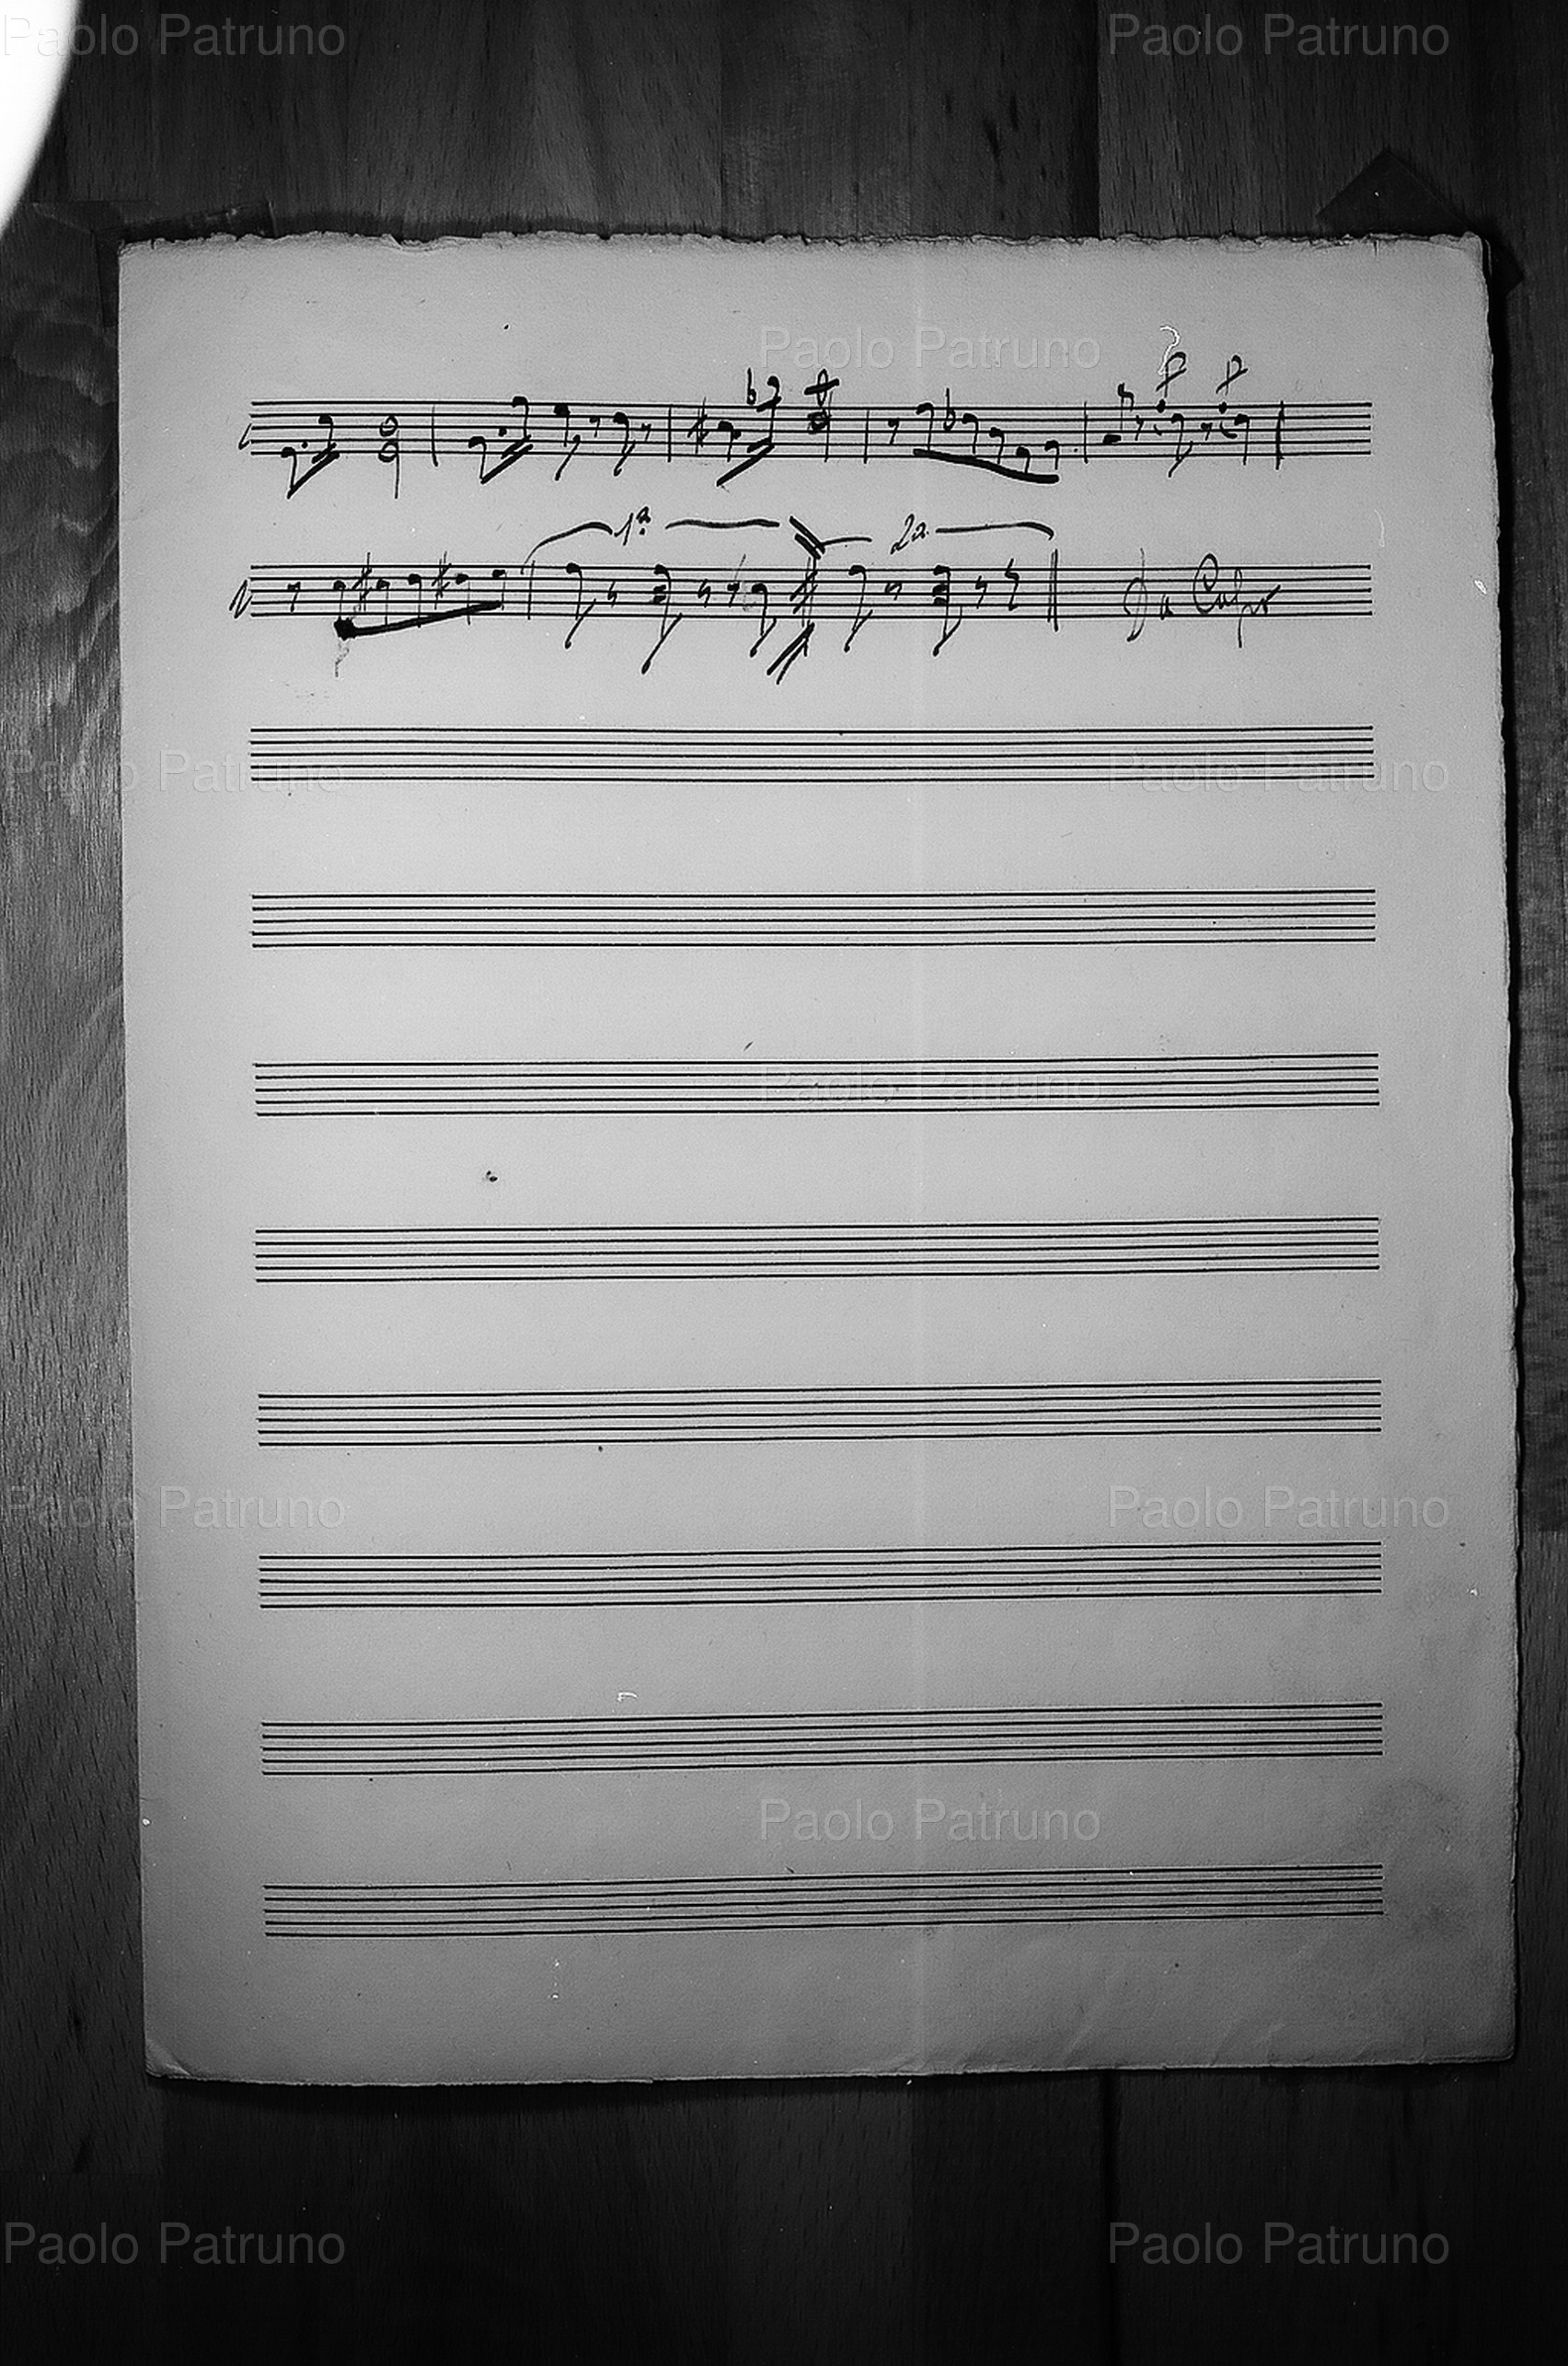 Paolo Patruno Paolo Patruno
Paolo Patruno
1a 2a
Da Capo
Paolo Patruno Paolo Patruno
Paolo Patruno
Paolo Patruno Paolo Patruno
Paolo Patruno
Paolo Patruno Paolo Patruno